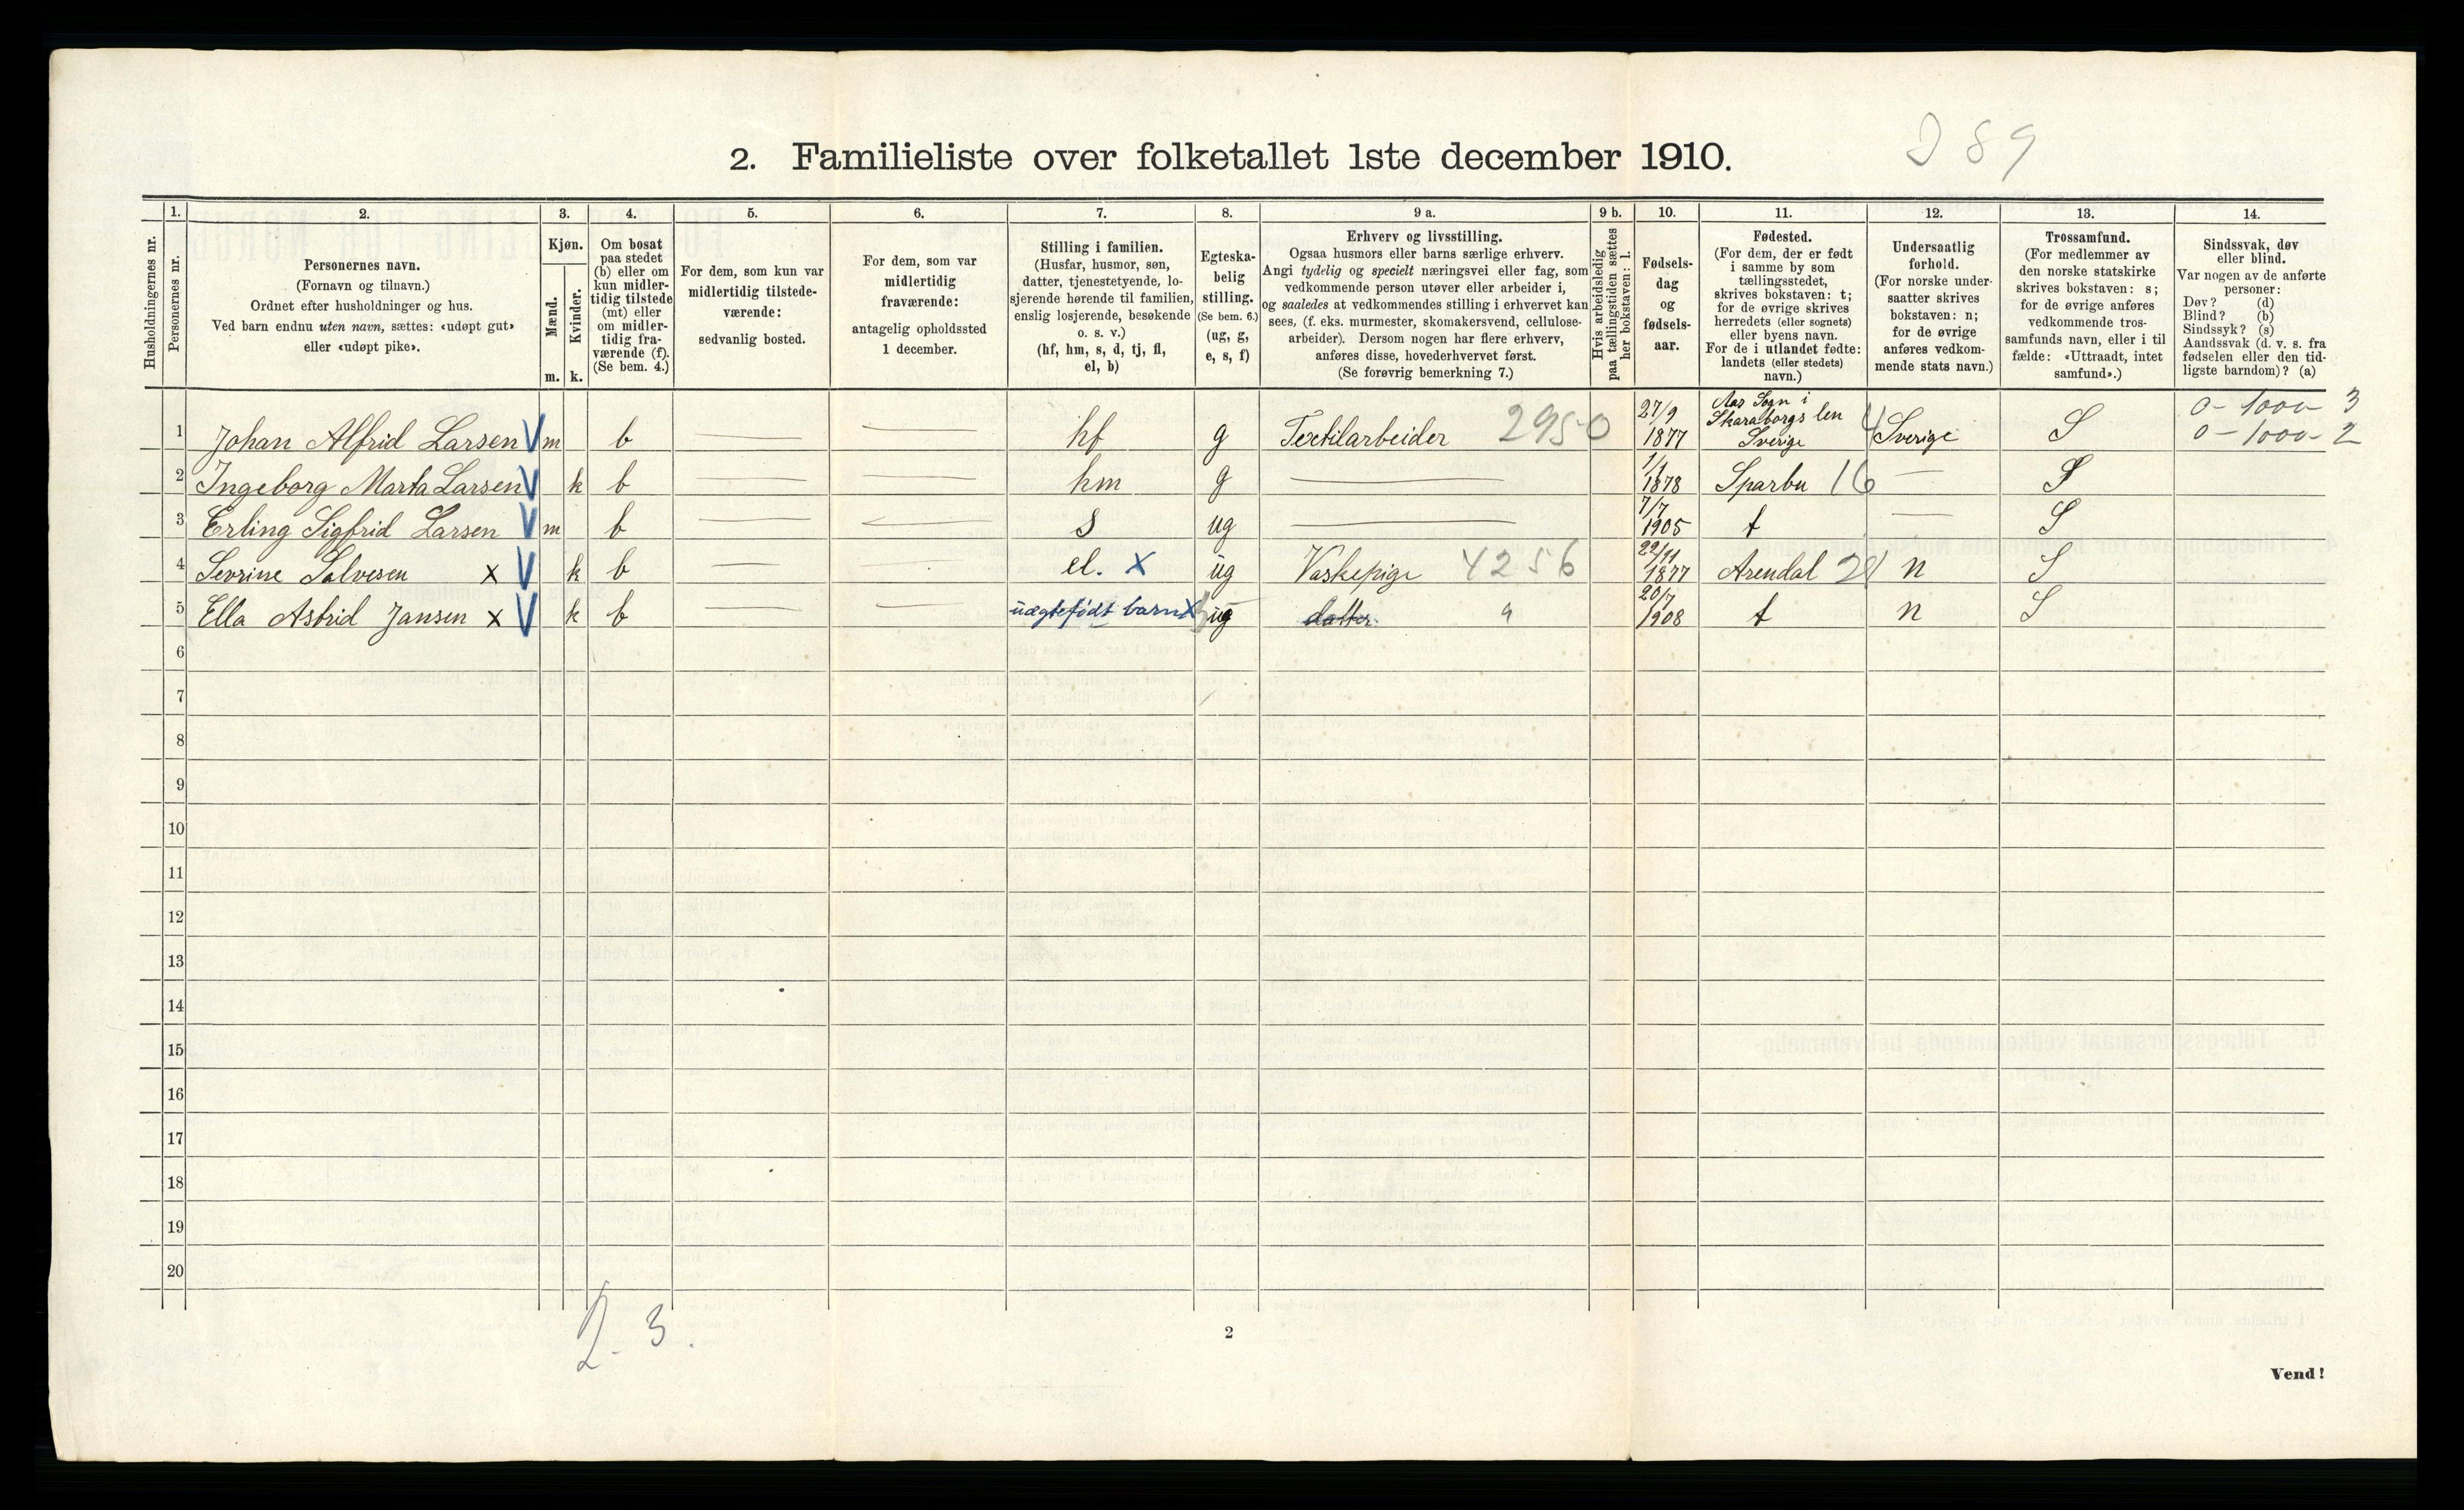 2. Familieliste over folketallet 1ste december 1910.
289
Husholdningernes nr.
1. Personernes nr.
2. Personernes navn.
(Fornavn og tilnavn.)
Ordnet efter husholdninger og hus.
Ved barn endnu uten navn, sættes: «udøpt gut»
eller «udøpt pike».
3. Kjøn.
Mænd. Kvinder.
m. k.
4. Om bosat
paa stedet
(b) eller om
kun midler-
tidig tilstede
(mt) eller
om midler-
tidig fra-
værende (f).
(Se bem. 4.)
5. For dem, som kun var
midlertidig tilstede-
værende:
sedvanlig bosted.
6. For dem, som var
midlertidig
fraværende:
antagelig opholdssted
1 december.
7. Stilling i familien.
(Husfar, husmor, søn,
datter, tjenestetyende, lo-
sjerende hørende til familien,
enslig losjerende, besøkende
o. s. v.)
(hf, hm, s, d, tj, fl,
el, b)
8. Egteska-
belig
stilling.
(Se bem. 6.)
(ug, g,
e, s, f)
9 a. Erhverv og livsstilling.
Ogsaa husmors eller barns særlige erhverv.
Angi tydelig og specielt næringsvei eller fag, som
vedkommende person utøver eller arbeider i,
og saaledes at vedkommendes stilling i erhvervet kan
sees, (f. eks. murmester, skomakersvend, cellulose-
arbeider). Dersom nogen har flere erhverv,
anføres disse, hovederhvervet først.
(Se forøvrig bemerkning 7.)
9 b. Hvis arbeidsledig
paa tællingstiden sættes
her bokstaven: l.
10. Fødsels-
dag
og
fødsels-
aar.
11. Fødested.
(For dem, der er født
i samme by som
tællingsstedet,
skrives bokstaven: t;
for de øvrige skrives
herredets (eller sognets)
eller byens navn.
For de i utlandet fødte:
landets (eller stedets)
navn.)
12. Undersaatlig
forhold.
(For norske under-
saatter skrives
bokstaven: n;
for de øvrige
anføres vedkom-
mende stats navn.)
13. Trossamfund.
(For medlemmer av
den norske statskirke
skrives bokstaven: s;
for de øvrige anføres
vedkommende tros-
samfunds navn, eller i til
fælde: «Uttraadt, intet
samfund».)
14. Sindssvak, døv
eller blind.
Var nogen av de anførte
personer:
Døv? (d)
Blind? (b)
Sindssyk? (s)
Aandssvak (d. v. s. fra
fødselen eller den tid-
ligste barndom)? (a)
1 Johan Alfrid Larsen V m b hf g Textilarbeider 2950 27/9 1877 Aas Sogn i Skaraborgs len Sverige 4 Sverige S 0-1000-3
0-1000-2
2 Ingeborg Marta Larsen V k b hm g 1/1 1878 Sparbu 16 S
3 Erling Sigfrid Larsen V m b s ug 7/7 1905 t S
4 Sevrine Salvesen x V k b el. x ug Vaskepige 4256 22/11 1877 Arendal 21 n S
5 Ella Astrid Jansen x V k b uægtefødt barn x ug datter 20/7 1908 t n S
6
7
8
9
10
11
12
13
14
15
16
17
18
19
20
2. 3.
2
Vend!